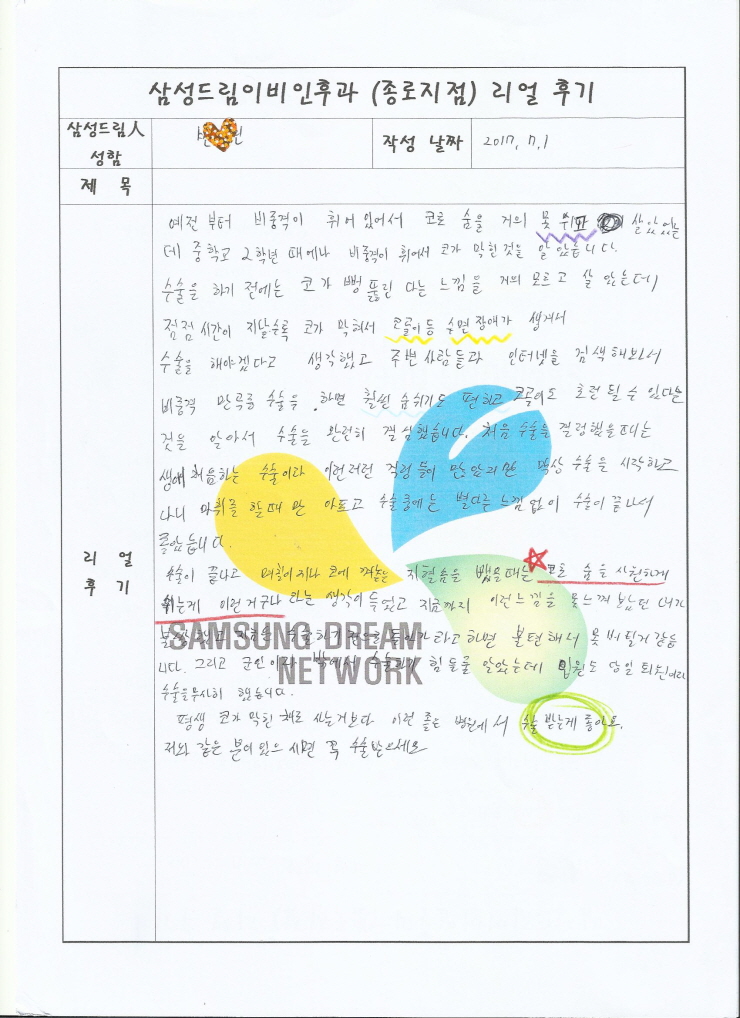 삼성드림이비인후과 (종로지점) 리얼 후기
삼성드림人
성함
작성 날짜
2017. 7. 1
제 목
리 얼
후 기
예전 부터 비중격이 휘어 있어서 코로 숨을 거의 못 쉬고 살았었는
데 중학교 2학년 때에나 비중격이 휘어서 코가 막힌것을 알았습니다.
수술을 하기 전에는 코가 뻥 뚫린 다는 느낌을 거의 모르고 살았는데
점점 시간이 지날수록 코가 막혀서 코골이등 수면장애가 생겨서
수술을 해야겠다고 생각했고 주변사람들과 인터넷을 검색해보서
비중격 만곡증 수술을 하면 훨씬 숨쉬기도 편하고 코골이도 호전 될 수 있다는
것을 알아서 수술을 완전히 결심했습니다. 처음 수술을 결정했을때는
생애처음하는 수술이라 이런저런 걱정들이 만 막상 수술을 시작하고
나니 마취를 할때 만 아프고 수술중에는 별다른 느낌없이 수술이 끝나서
좋았습니다.
수술이 끝나고 몇일이 지나 코에 지혈솜을 뺐을때는 코로 숨을 시원하게
쉬는게 이런거구나 라는 생각이 들었고 지금까지 이런느낌을 못느껴 봤던 내가
수술하기 전으로 돌아가라고 하면 불편해서 못 버틸거 같습
니다. 그리고 군인이라 밖에서 수술하기 힘들줄 알았는데 입원도 당일 퇴원이라
수술을무사히 했습니다.
평생 코가 막힌 채로 사는거보다 이런 좋은 병원에서 수술 받는게 좋아요.
저와 같은 분이 있으시면 꼭 수술받으세요
SAMSUNG DREAM
NETWORK